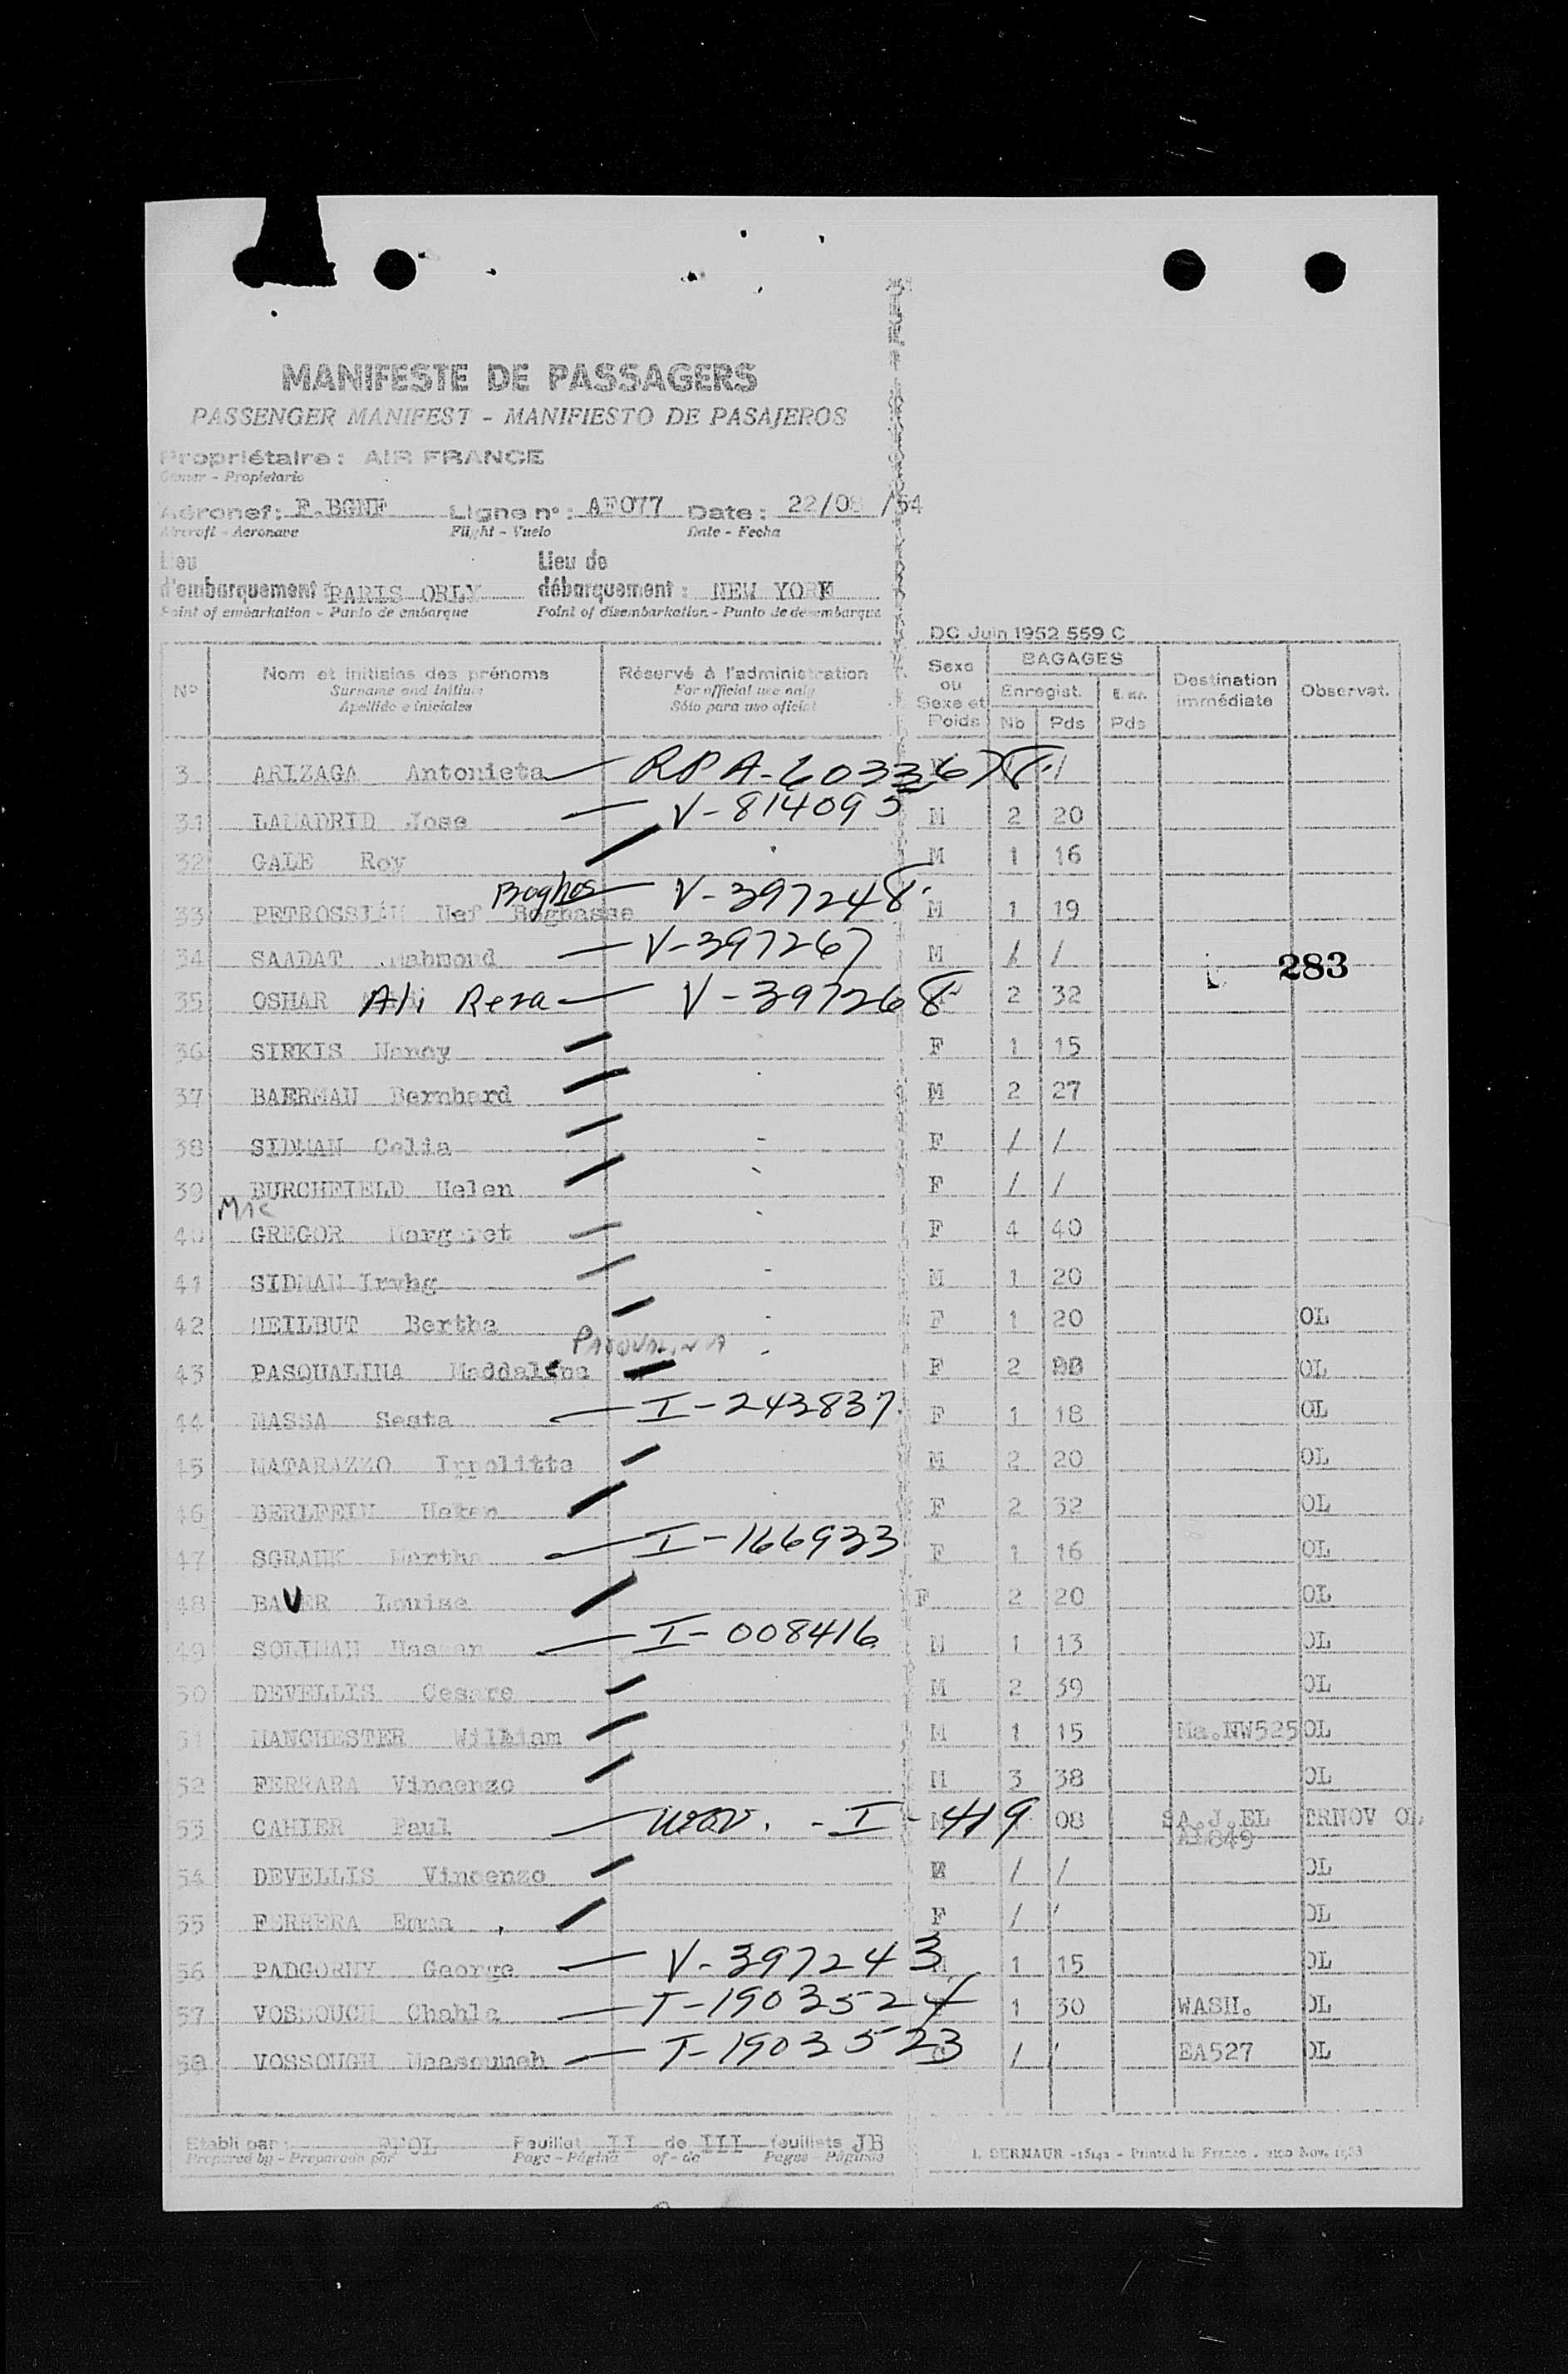 MANIFESTE DE PASSAGERS
PASSENGER MANIFEST - MANIFIESTO DE PASAJEROS
Propriétaire: AIR FRANCE
Owner - Propietario
Aéronef: F.BGNF Ligne n°: AF077 Date: 22/08 /54
Aircraft - Aeronave Flight - Vuelo Date - Fecha
Lieu d'embarquement: PARIS ORLY Lieu de débarquement: NEW YORK
Point of embarkation - Punto de embarque Point of disembarkation - Punto de desembarque
DC Juin 1952 559 C
N° Nom et initiales des prénoms Réservé à l'administration Sexe ou Sexe et Poids BAGAGES Destination immédiate Observat.
Surname and initials For official use only Enregist.
Apellido e iniciales Sólo para uso oficial Nb Pds Pds
3 ARIZAGA Antonieta
31 LAMADRID Jose V-814095 M 2 20
32 GALE Roy M 1 16
Boghos
33 PETROSSIAN Nef V-397248 M 1 19
34 SAADAT Mahmoud V-397267 M / /
283
35 OSHAR Ali Reza V-397268 2 32
36 SIRKIS Nancy F 1 15
37 BAERMAN Bernhard M 2 27
38 SIDMAN Celia F / /
39 BURCHFIELD Helen F / /
Mac
40 GREGOR Margaret F 4 40
41 SIDMAN Irvhg M 1 20
42 HEILBUT Bertha F 1 20 OL
PASQUALINA
43 PASQUALINA Maddalena F 2 OL
44 MASSA Sesta I-243837 F 1 18 OL
45 MATARAZZO Ippolitto M 2 20 OL
46 BERLFEIN F 2 32 OL
47 Martha I-166933 F 1 16 OL
48 BAVER Louise F 2 20 OL
49 SOLIMAN Hassan I-008416 M 1 13 OL
50 DEVELLIS Cesare M 2 39 OL
51 MANCHESTER William M 1 15 Ma.NW525 OL
52 FERRARA Vincenzo M 3 38 OL
53 CAHIER Paul I-419 M 08 SA.J.EL TRNOV OL
54 DEVELLIS Vincenzo M / / OL
55 FERRERA Emma F / / OL
56 PADGORNY George V-397243 1 15 OL
57 VOSSOUGH Chahla T-1903524 1 30 WASH. OL
58 VOSSOUGH Maasoumeh T-1903523 / / EA527 OL
Etabli par: Feuillet II de III feuillets JB
Prepared by - Preparado por Page - Página of - de Pages - Páginas
Printed in France